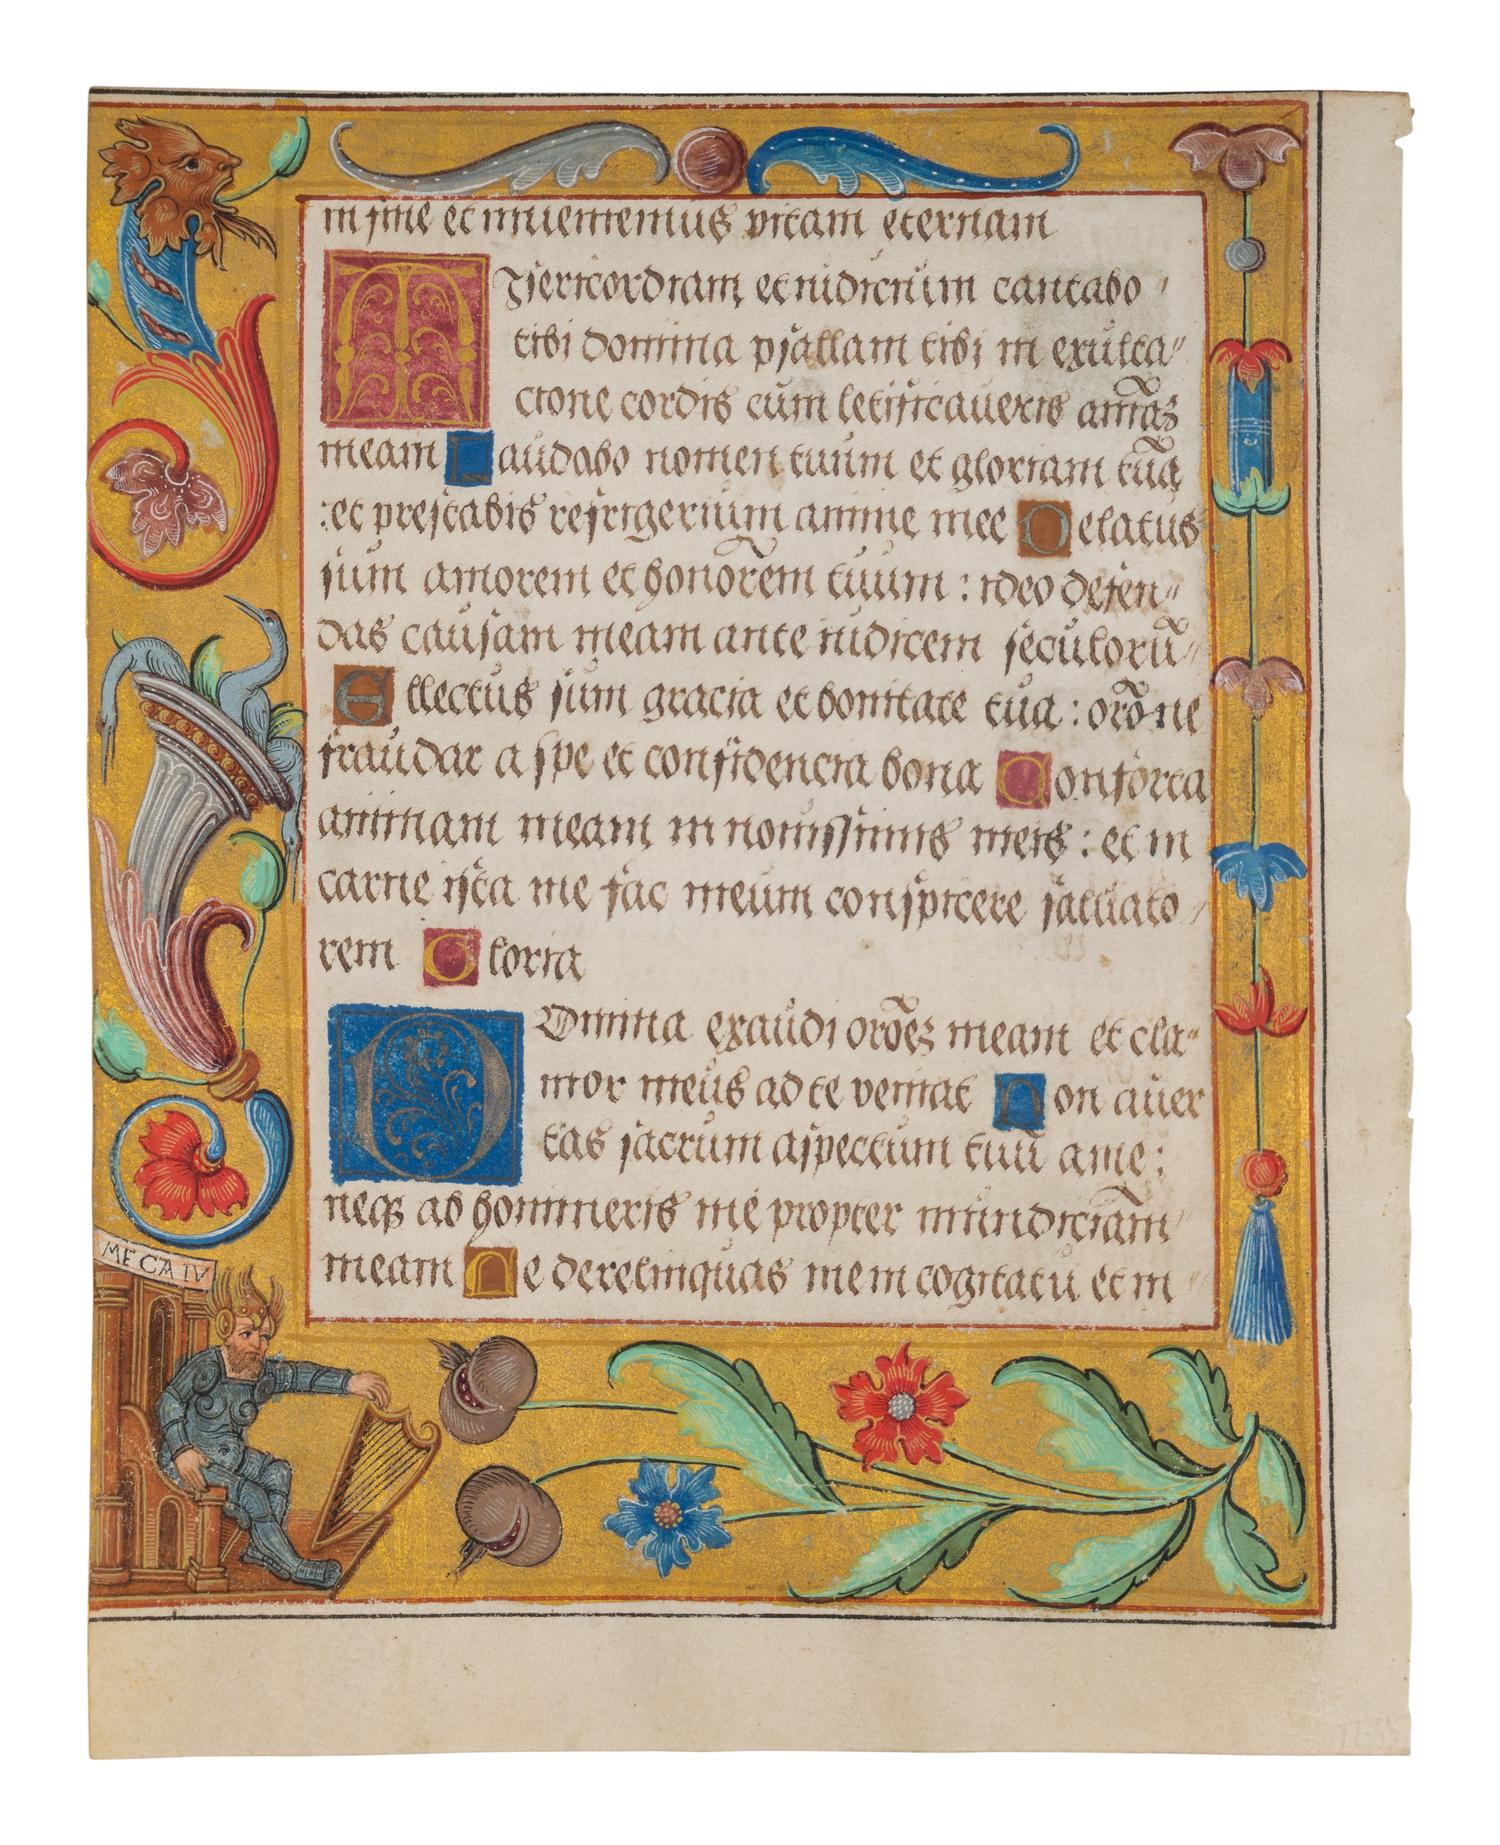 in fine et inueniemus vitam eternam
Misericordiam et iudicium cantabo
tibi domina psallam tibi in exulta〃
cione cordis cum letificaueris
meam Laudabo nomen tuum et gloriam tuā
: et prestabis refrigerium anime mee Zelatus
sum amorem et honorem tuum : ideo defen〃
das causam meam ante iudicem seculorū
Ellectus sum gracia et bonitate tua : oro ne
fraudar a spe et confidencia bona Conforta
animam meam in nouissimis meis : et in
carne ista me fac meum conspicere saluato
rem Gloria
Domina exaudi meam et cla〃
mor meus ad te veniat Non auer
tas sacrum aspectum tuū a me :
neqꝫ abhomineris me propter mundiciam
meam Ne derelinquas me in cogitatu et in
MECAIV